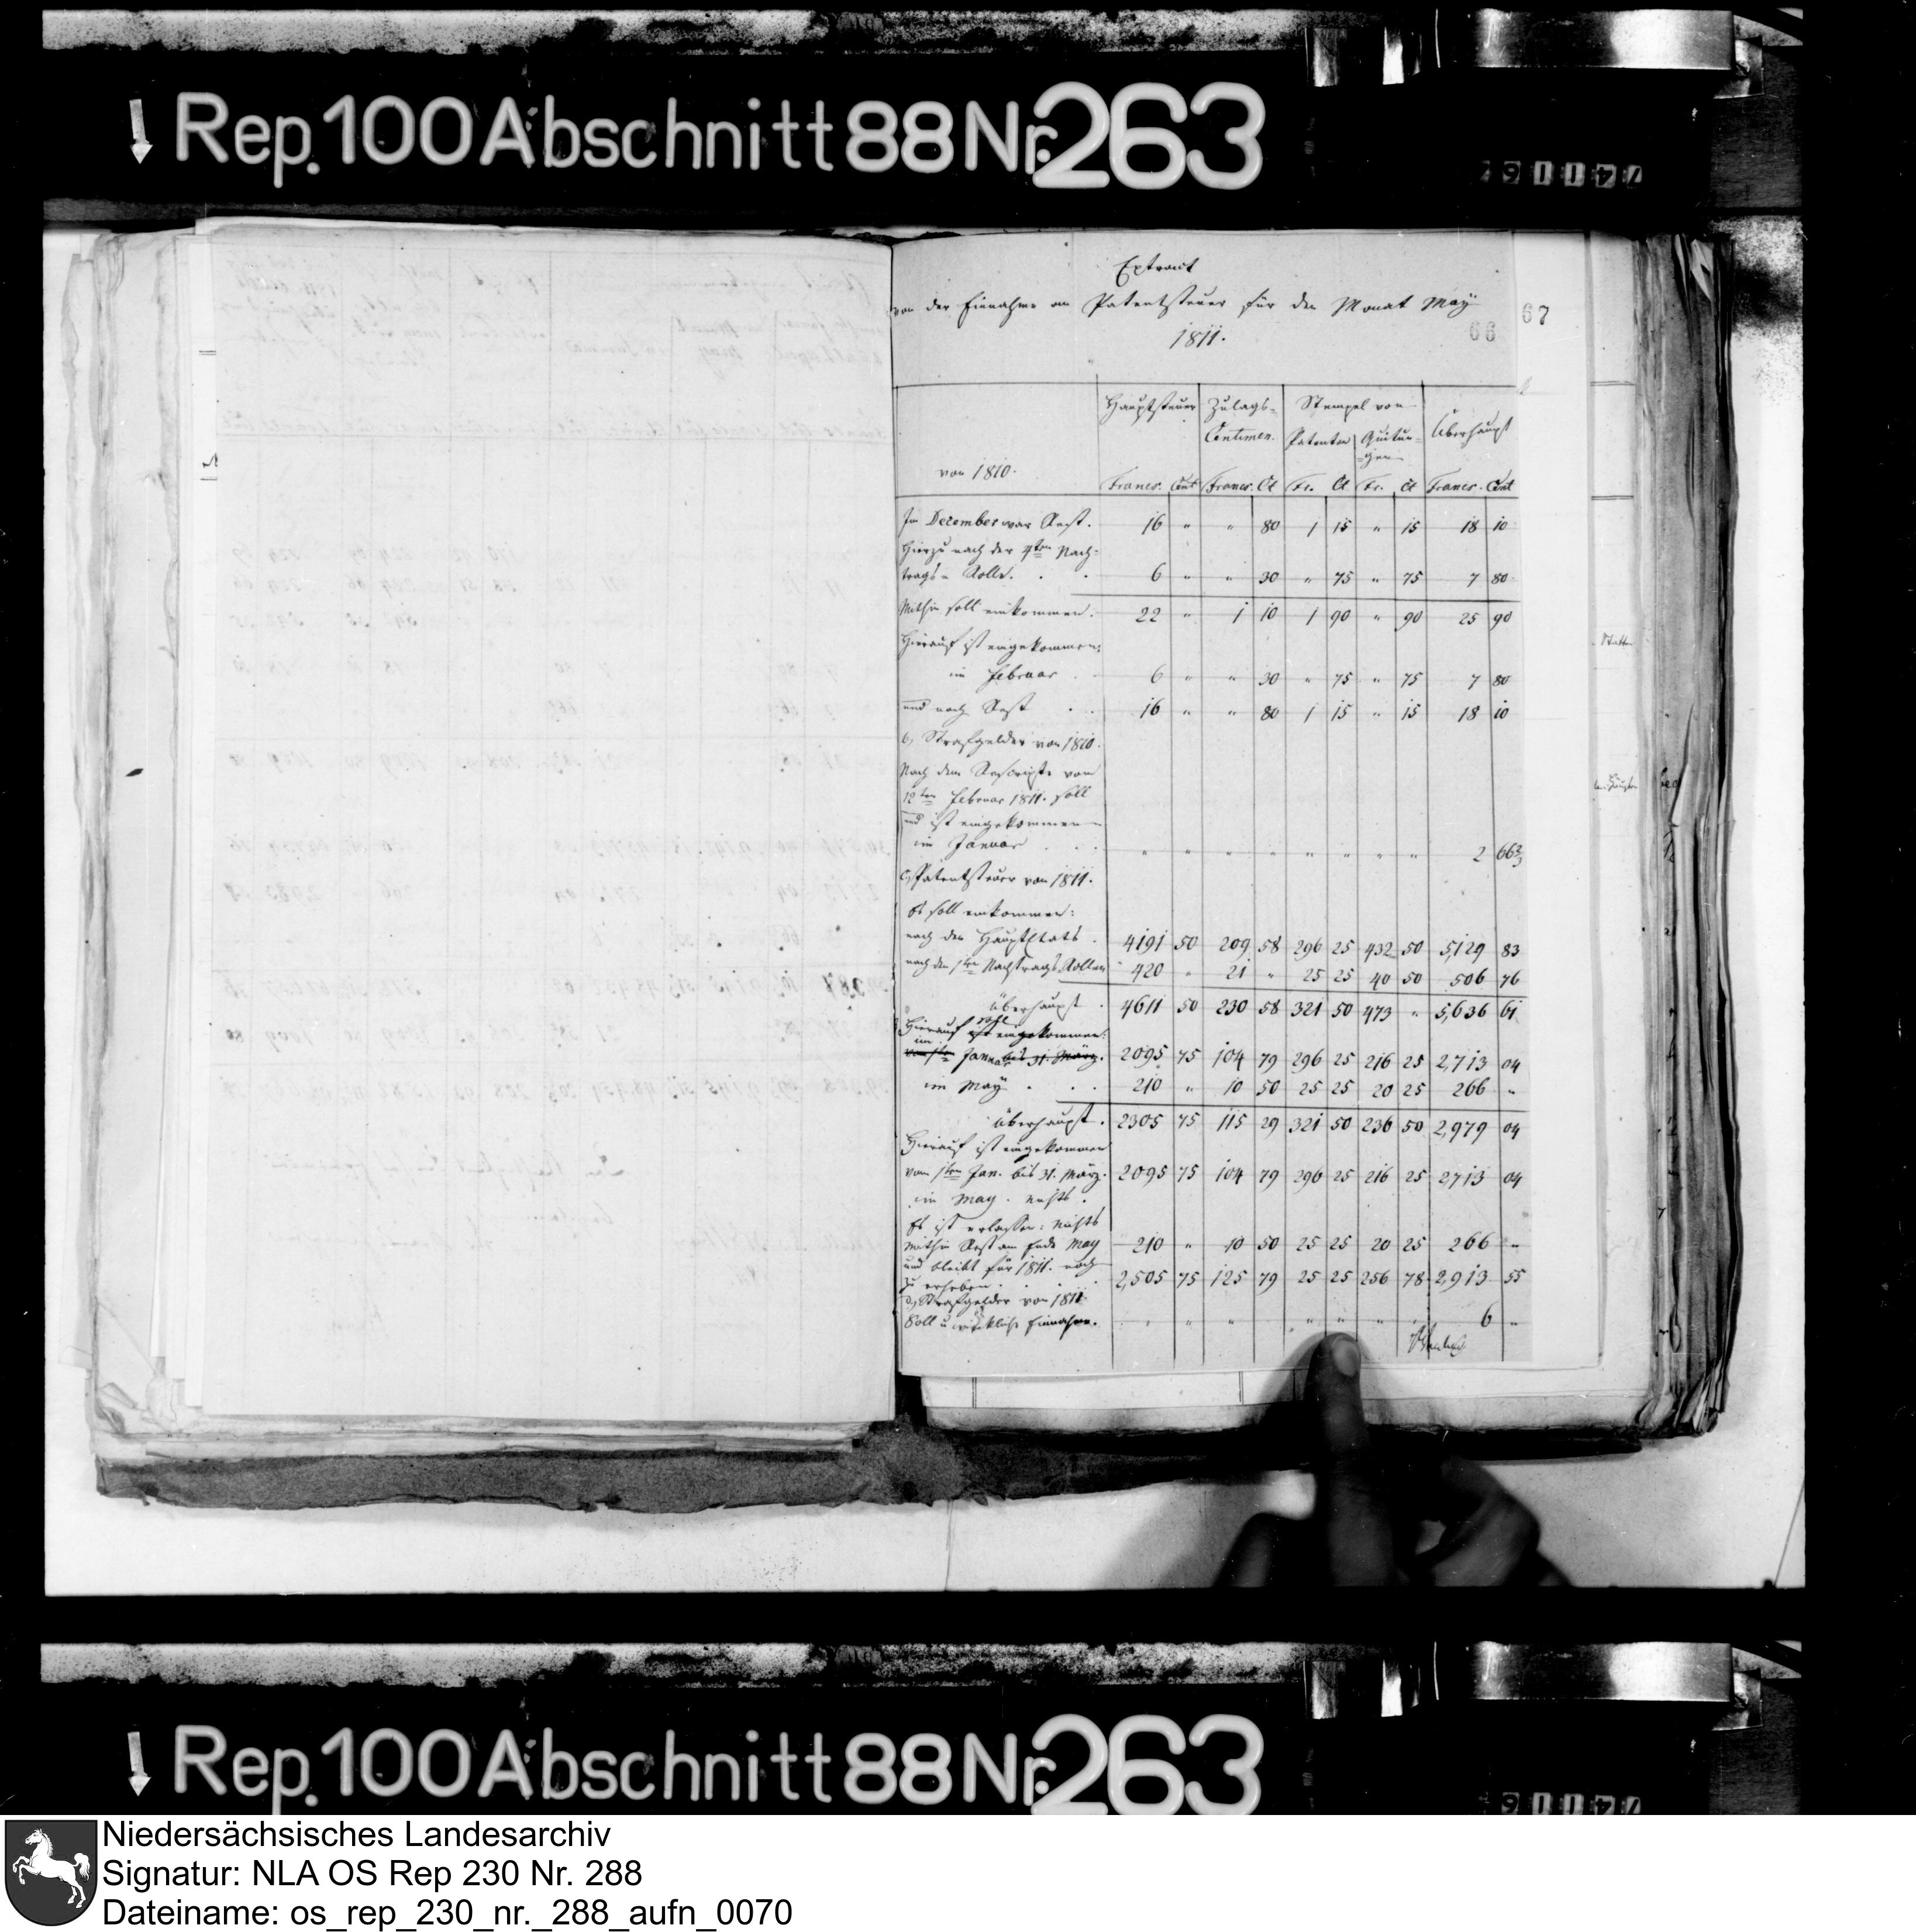 Rep. 100 Abschnitt 88 Nr. 263
741167
Extract
von der Einnahme an Patentsteuer für den Monat May
1811.
66
67
Hauptsteuer Zulags- Centimen. Stempel von Patenten Quitun-gen Überhaupt
von 1810. Francs. Cent Francs. Ct Fr. Ct Fr. Ct Francs. Cent
Im December war Rest. 16 " " 80 1 15 " 15 18 10
Hierzu nach der 4ten Nach-
trags-Rolle. 6 " " 30 " 75 " 75 7 80
Mithin soll einkommen. 22 " 1 10 1 90 " 90 25 90
Hierauf ist eingekommen:
im Februar 6 " " 30 " 75 " 75 7 80
und noch Rest 16 " " 80 1 15 " 15 18 10
b, Strafgelder von 1810.
Nach dem Rescripte vom
12ten Februar 1811. soll
und ist eingekommen
im Januar " " " " " " " " 2 66 2/3
c, Patentsteuer von 1811.
Es soll einkommen:
nach den HauptEtats 4191 50 209 58 296 25 432 50 5,129 83
nach den 1ten Nachtrags Rollen 420 " 21 " 25 25 40 50 506 76
Überhaupt 4611 50 230 58 321 50 473 " 5,636 61
Hierauf ist eingekommen:
im Januar bis 31. März. 2095 75 104 79 296 25 216 25 2,713 04
im May 210 " 10 50 25 25 20 25 266 "
Überhaupt. 2305 75 115 29 321 50 236 50 2,979 04
Hierauf ist eingekommen
vom 1ten Jan. bis 31. März. 2095 75 104 79 296 25 216 25 2713 04
im May. nichts.
Es ist erlassen: nichts
Mithin Rest am Ende May 210 " 10 50 25 25 20 25 266 "
und bleibt für 1811. noch
zu erheben. 2,505 75 125 79 25 25 256 78 2,913 55
d, Strafgelder von 1811
Soll u wirkliche Einnahme. " " " " " " " 6 "
Rep. 100 Abschnitt 88 Nr. 263
Niedersächsisches Landesarchiv
Signatur: NLA OS Rep 230 Nr. 288
Dateiname: os_rep_230_nr._288_aufn_0070